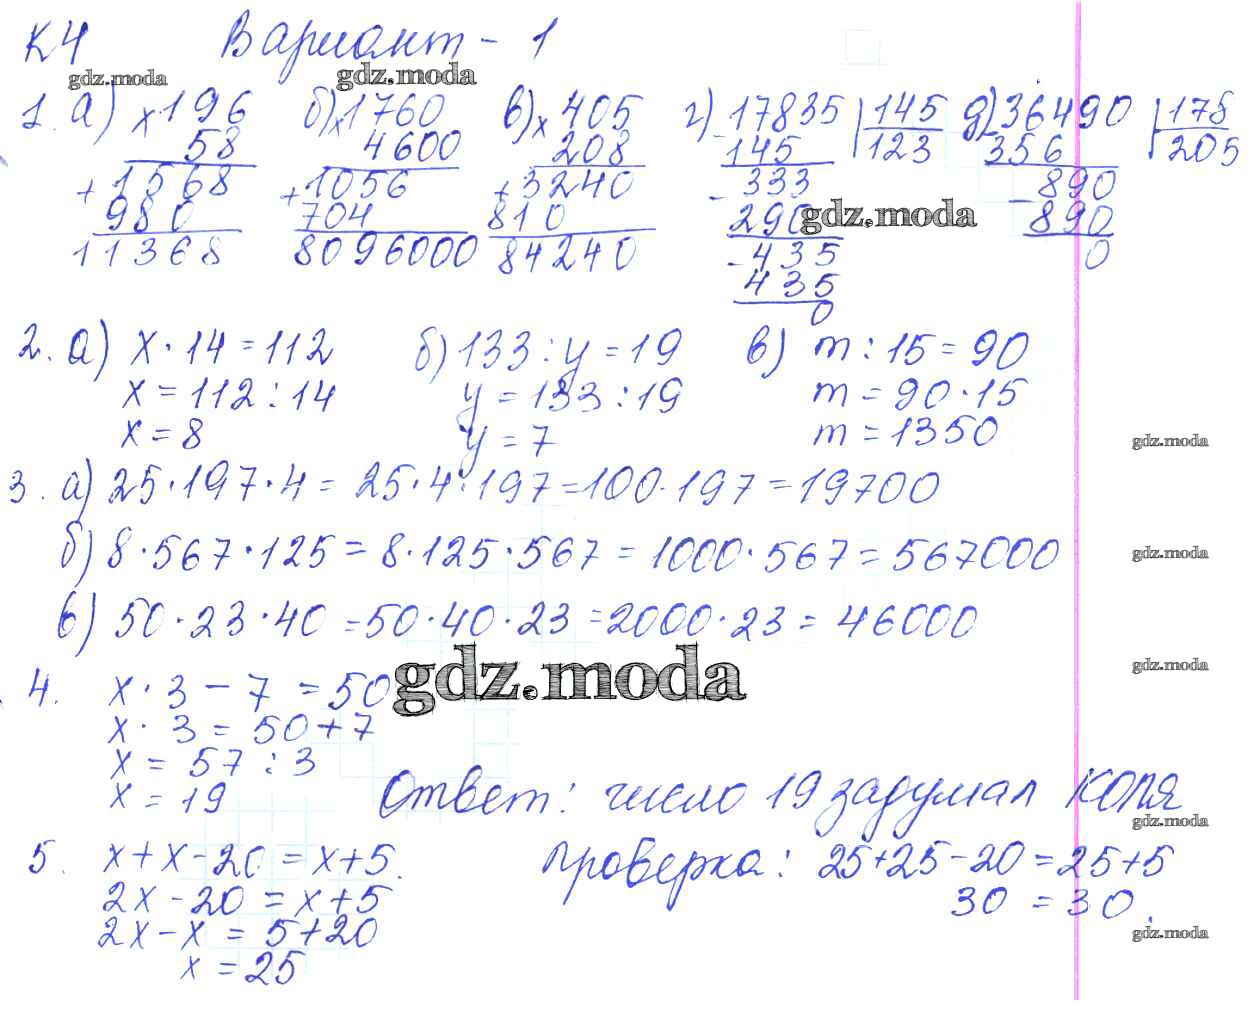 К4 Вариант - 1
gdz.moda gdz.moda
1. а) × 196 б) × 1760 в) × 405 г) 17835 | 145 д) 36490 | 178
58 4600 208 - 145 123 - 356 205
+ 1568 + 1056 + 3240 - 333 - 890
980 704 810 290 gdz.moda 890
11368 8096000 84240 - 435 0
435
0
2. а) x · 14 = 112 б) 133 : y = 19 в) m : 15 = 90
x = 112 : 14 y = 133 : 19 m = 90 · 15
x = 8 y = 7 m = 1350 gdz.moda
3. а) 25 · 197 · 4 = 25 · 4 · 197 = 100 · 197 = 19700
б) 8 · 567 · 125 = 8 · 125 · 567 = 1000 · 567 = 567000 gdz.moda
в) 50 · 23 · 40 = 50 · 40 · 23 = 2000 · 23 = 46000
gdz.moda gdz.moda
4. x · 3 - 7 = 50
x · 3 = 50 + 7
x = 57 : 3
x = 19 Ответ: число 19 задумал Коля
gdz.moda
5. x + x - 20 = x + 5. Проверка: 25 + 25 - 20 = 25 + 5
2x - 20 = x + 5 30 = 30.
2x - x = 5 + 20 gdz.moda
x = 25